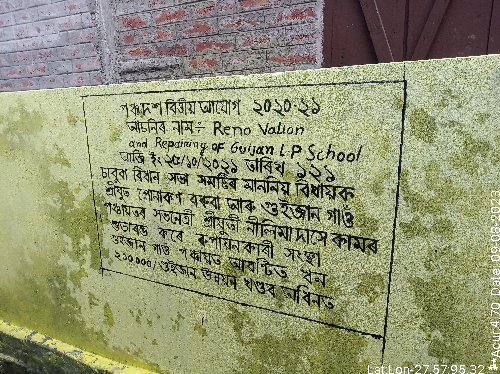 পঞ্চদশ বিত্তীয় আয়োগ ২০২০-২১
আঁচনিৰ নাম÷ Reno Vation
and Repairing OF Guijan L.P School
আজি ইং ২৫/১০/২০২১ তাৰিখ ১২১
চাবুৱা বিধান সভা সমষ্টিৰ মাননিয় বিধায়ক
শ্ৰীযুত পোনাকণ বৰুৱা আৰু গুইজান গাওঁ
পঞ্চায়তৰ সভানেত্ৰী শ্ৰীযুতী নীলিমা দাসে কামৰ
শুভাৰম্ভ কৰে ৰূপায়ন কাৰী সংস্থা
গুইজান গাওঁ পঞ্চায়ত আবণ্টিত ধন
২১০০০০/ গুইজান উন্নয়ন খণ্ডৰ অধিনত
Lat Lon-27.57.95,32